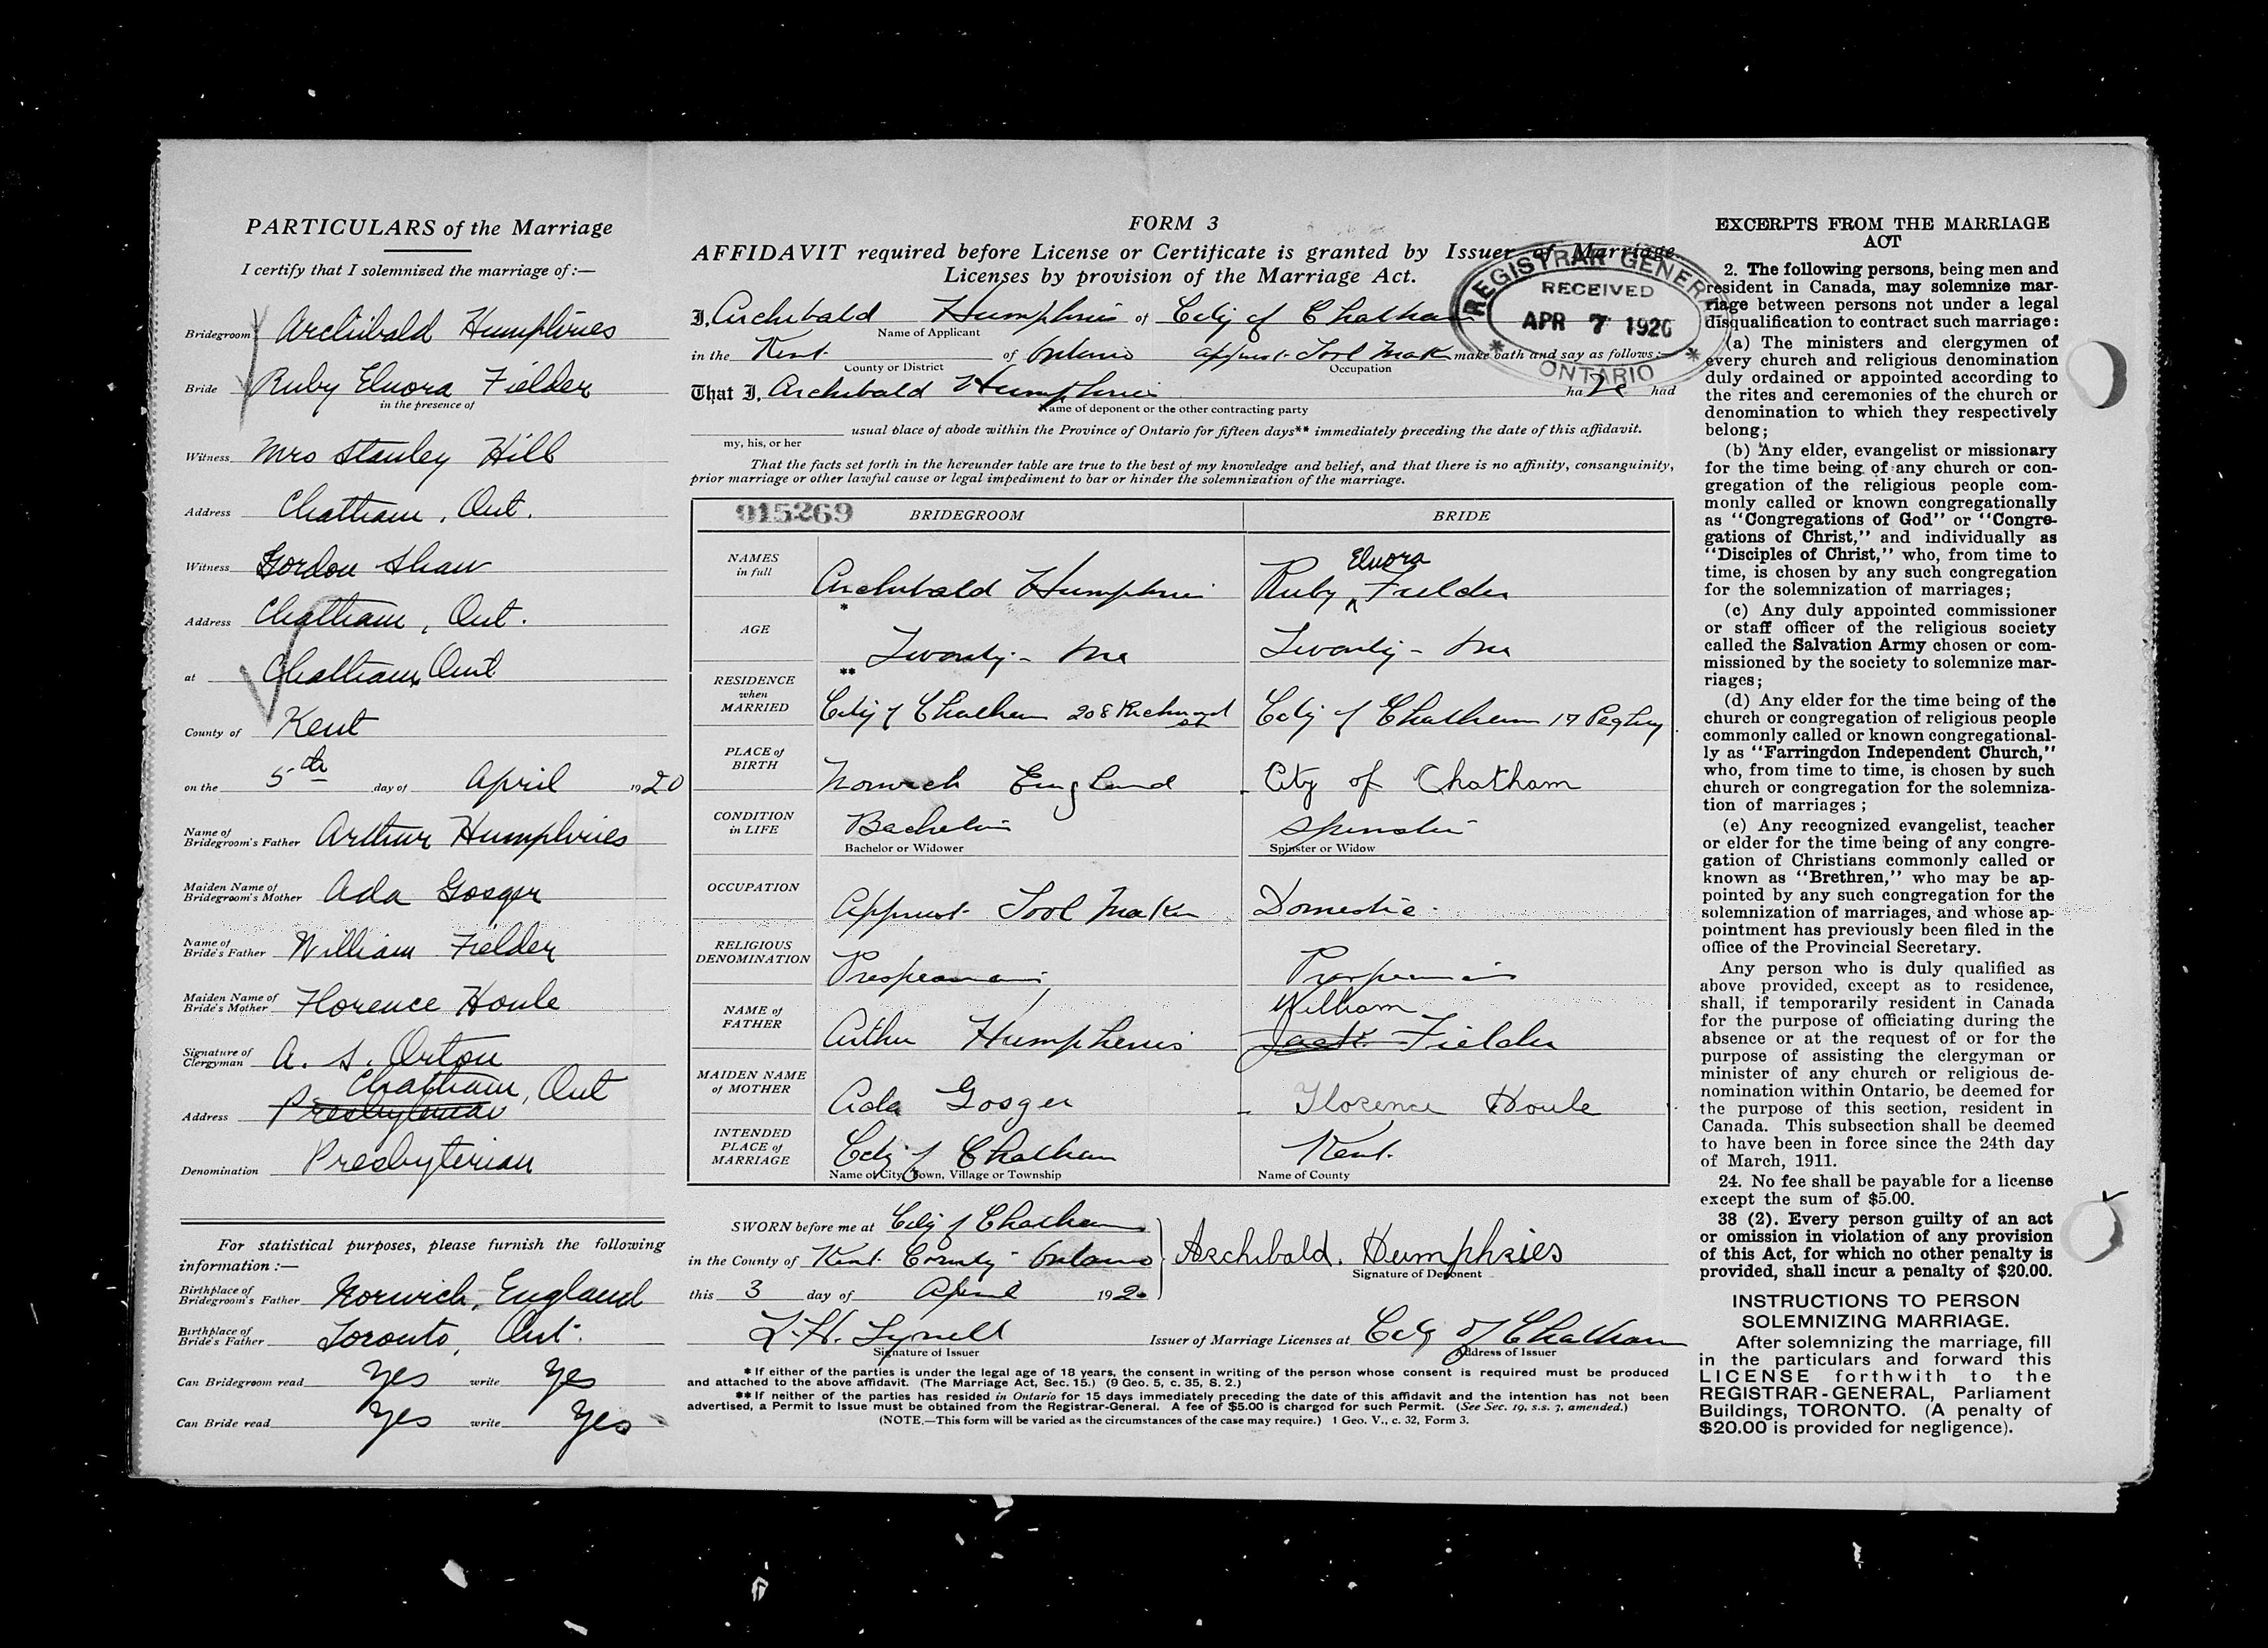 PARTICULARS of the Marriage
I certify that I solemnized the marriage of:—
Bridegroom Archibald Humphries
Bride Ruby Elnora Fielder
in the presence of
Witness Mrs Stanley Hill
Address Chatham, Ont.
Witness Gordon Shaw
Address Chatham, Ont.
at Chatham, Ont
County of Kent
on the 5th day of April 1920
Name of Bridegroom's Father Arthur Humphries
Maiden Name of Bridegroom's Mother Ada Gosger
Name of Bride's Father William Fielder
Maiden Name of Bride's Mother Florence Houle
Signature of Clergyman A. S. Orton
Chatham, Ont
Address Presbyterian
Denomination Presbyterian
For statistical purposes, please furnish the following
information :—
Birthplace of Bridegroom's Father Norwich, England
Birthplace of Bride's Father Toronto, Ont.
Can Bridegroom read Yes write Yes
Can Bride read Yes write Yes
FORM 3
AFFIDAVIT required before License or Certificate is granted by Issuer of Marriage
Licenses by provision of the Marriage Act.
REGISTRAR GENERAL
RECEIVED
APR 7 1920
ONTARIO
I, Archibald Humphries of City of Chatham
Name of Applicant
in the Kent of Ontario Tool Maker make oath and say as follows:—
County or District Occupation
That I, Archibald Humphries ha ve had
Name of deponent or the other contracting party
usual place of abode within the Province of Ontario for fifteen days** immediately preceding the date of this affidavit.
my, his, or her
That the facts set forth in the hereunder table are true to the best of my knowledge and belief, and that there is no affinity, consanguinity,
prior marriage or other lawful cause or legal impediment to bar or hinder the solemnization of the marriage.
015269 BRIDEGROOM BRIDE
NAMES in full Archibald Humphries Ruby Elnora Fielder
*
AGE Twenty-One Twenty-One
**
RESIDENCE when MARRIED City of Chatham 208 Richmond St City of Chatham 17
PLACE of BIRTH Norwich England City of Chatham
CONDITION in LIFE Bachelor Spinster
Bachelor or Widower Spinster or Widow
OCCUPATION Tool Maker Domestic
RELIGIOUS DENOMINATION
NAME of FATHER Arthur Humphries William Jack Fielder
MAIDEN NAME of MOTHER Ada Gosger Florence Houle
INTENDED PLACE of MARRIAGE City of Chatham Kent.
Name of City, Town, Village or Township Name of County
SWORN before me at City of Chatham
in the County of Kent County Ontario Archibald. Humphries
Signature of Deponent
this 3 day of April 1920
Issuer of Marriage Licenses at City of Chatham
Signature of Issuer Address of Issuer
* If either of the parties is under the legal age of 18 years, the consent in writing of the person whose consent is required must be produced
and attached to the above affidavit. (The Marriage Act, Sec. 15.) (9 Geo. 5, c. 35, S. 2.)
** If neither of the parties has resided in Ontario for 15 days immediately preceding the date of this affidavit and the intention has not been
advertised, a Permit to Issue must be obtained from the Registrar-General. A fee of $5.00 is charged for such Permit. (See Sec. 19, s.s. 3, amended.)
(NOTE.—This form will be varied as the circumstances of the case may require.) 1 Geo. V., c. 32, Form 3.
EXCERPTS FROM THE MARRIAGE
ACT
2. The following persons, being men and
resident in Canada, may solemnize mar-
riage between persons not under a legal
disqualification to contract such marriage:
(a) The ministers and clergymen of
every church and religious denomination
duly ordained or appointed according to
the rites and ceremonies of the church or
denomination to which they respectively
belong;
(b) Any elder, evangelist or missionary
for the time being of any church or con-
gregation of the religious people com-
monly called or known congregationally
as "Congregations of God" or "Congre-
gations of Christ," and individually as
"Disciples of Christ," who, from time to
time, is chosen by any such congregation
for the solemnization of marriages;
(c) Any duly appointed commissioner
or staff officer of the religious society
called the Salvation Army chosen or com-
missioned by the society to solemnize mar-
riages;
(d) Any elder for the time being of the
church or congregation of religious people
commonly called or known congregational-
ly as "Farringdon Independent Church,"
who, from time to time, is chosen by such
church or congregation for the solemniza-
tion of marriages ;
(e) Any recognized evangelist, teacher
or elder for the time being of any congre-
gation of Christians commonly called or
known as "Brethren," who may be ap-
pointed by any such congregation for the
solemnization of marriages, and whose ap-
pointment has previously been filed in the
office of the Provincial Secretary.
Any person who is duly qualified as
above provided, except as to residence,
shall, if temporarily resident in Canada
for the purpose of officiating during the
absence or at the request of or for the
purpose of assisting the clergyman or
minister of any church or religious de-
nomination within Ontario, be deemed for
the purpose of this section, resident in
Canada. This subsection shall be deemed
to have been in force since the 24th day
of March, 1911.
24. No fee shall be payable for a license
except the sum of $5.00.
38 (2). Every person guilty of an act
or omission in violation of any provision
of this Act, for which no other penalty is
provided, shall incur a penalty of $20.00.
INSTRUCTIONS TO PERSON
SOLEMNIZING MARRIAGE.
After solemnizing the marriage, fill
in the particulars and forward this
LICENSE forthwith to the
REGISTRAR-GENERAL, Parliament
Buildings, TORONTO. (A penalty of
$20.00 is provided for negligence).